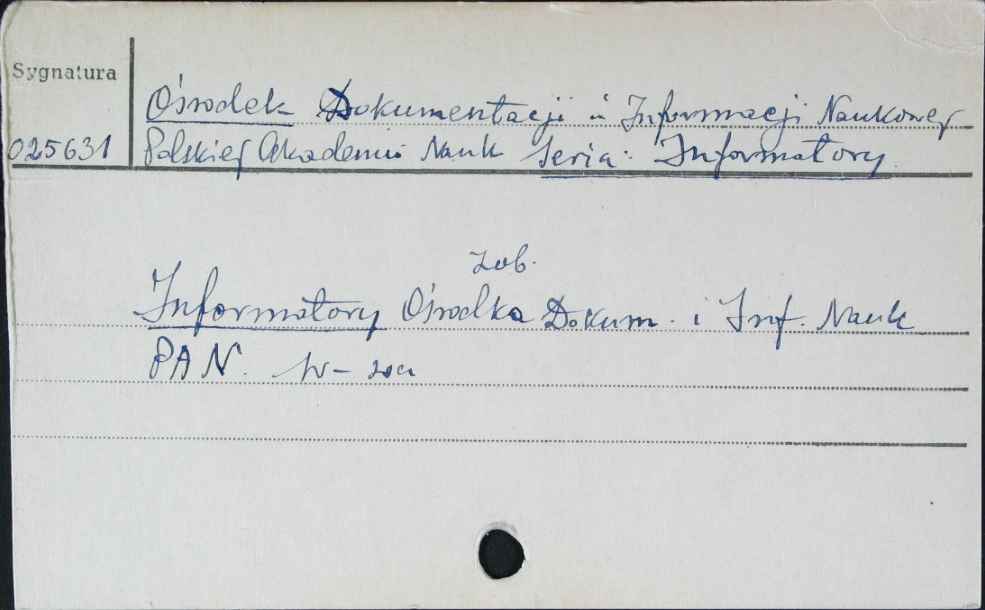 Sygnatura
Ośrodek Dokumentacji i Informacji Naukowej
025631 Polskiej Akademii Nauk Seria: Informatory.
zob.
Informatory Ośrodka Dokum. i Inf. Nauk
PAN. W-wa